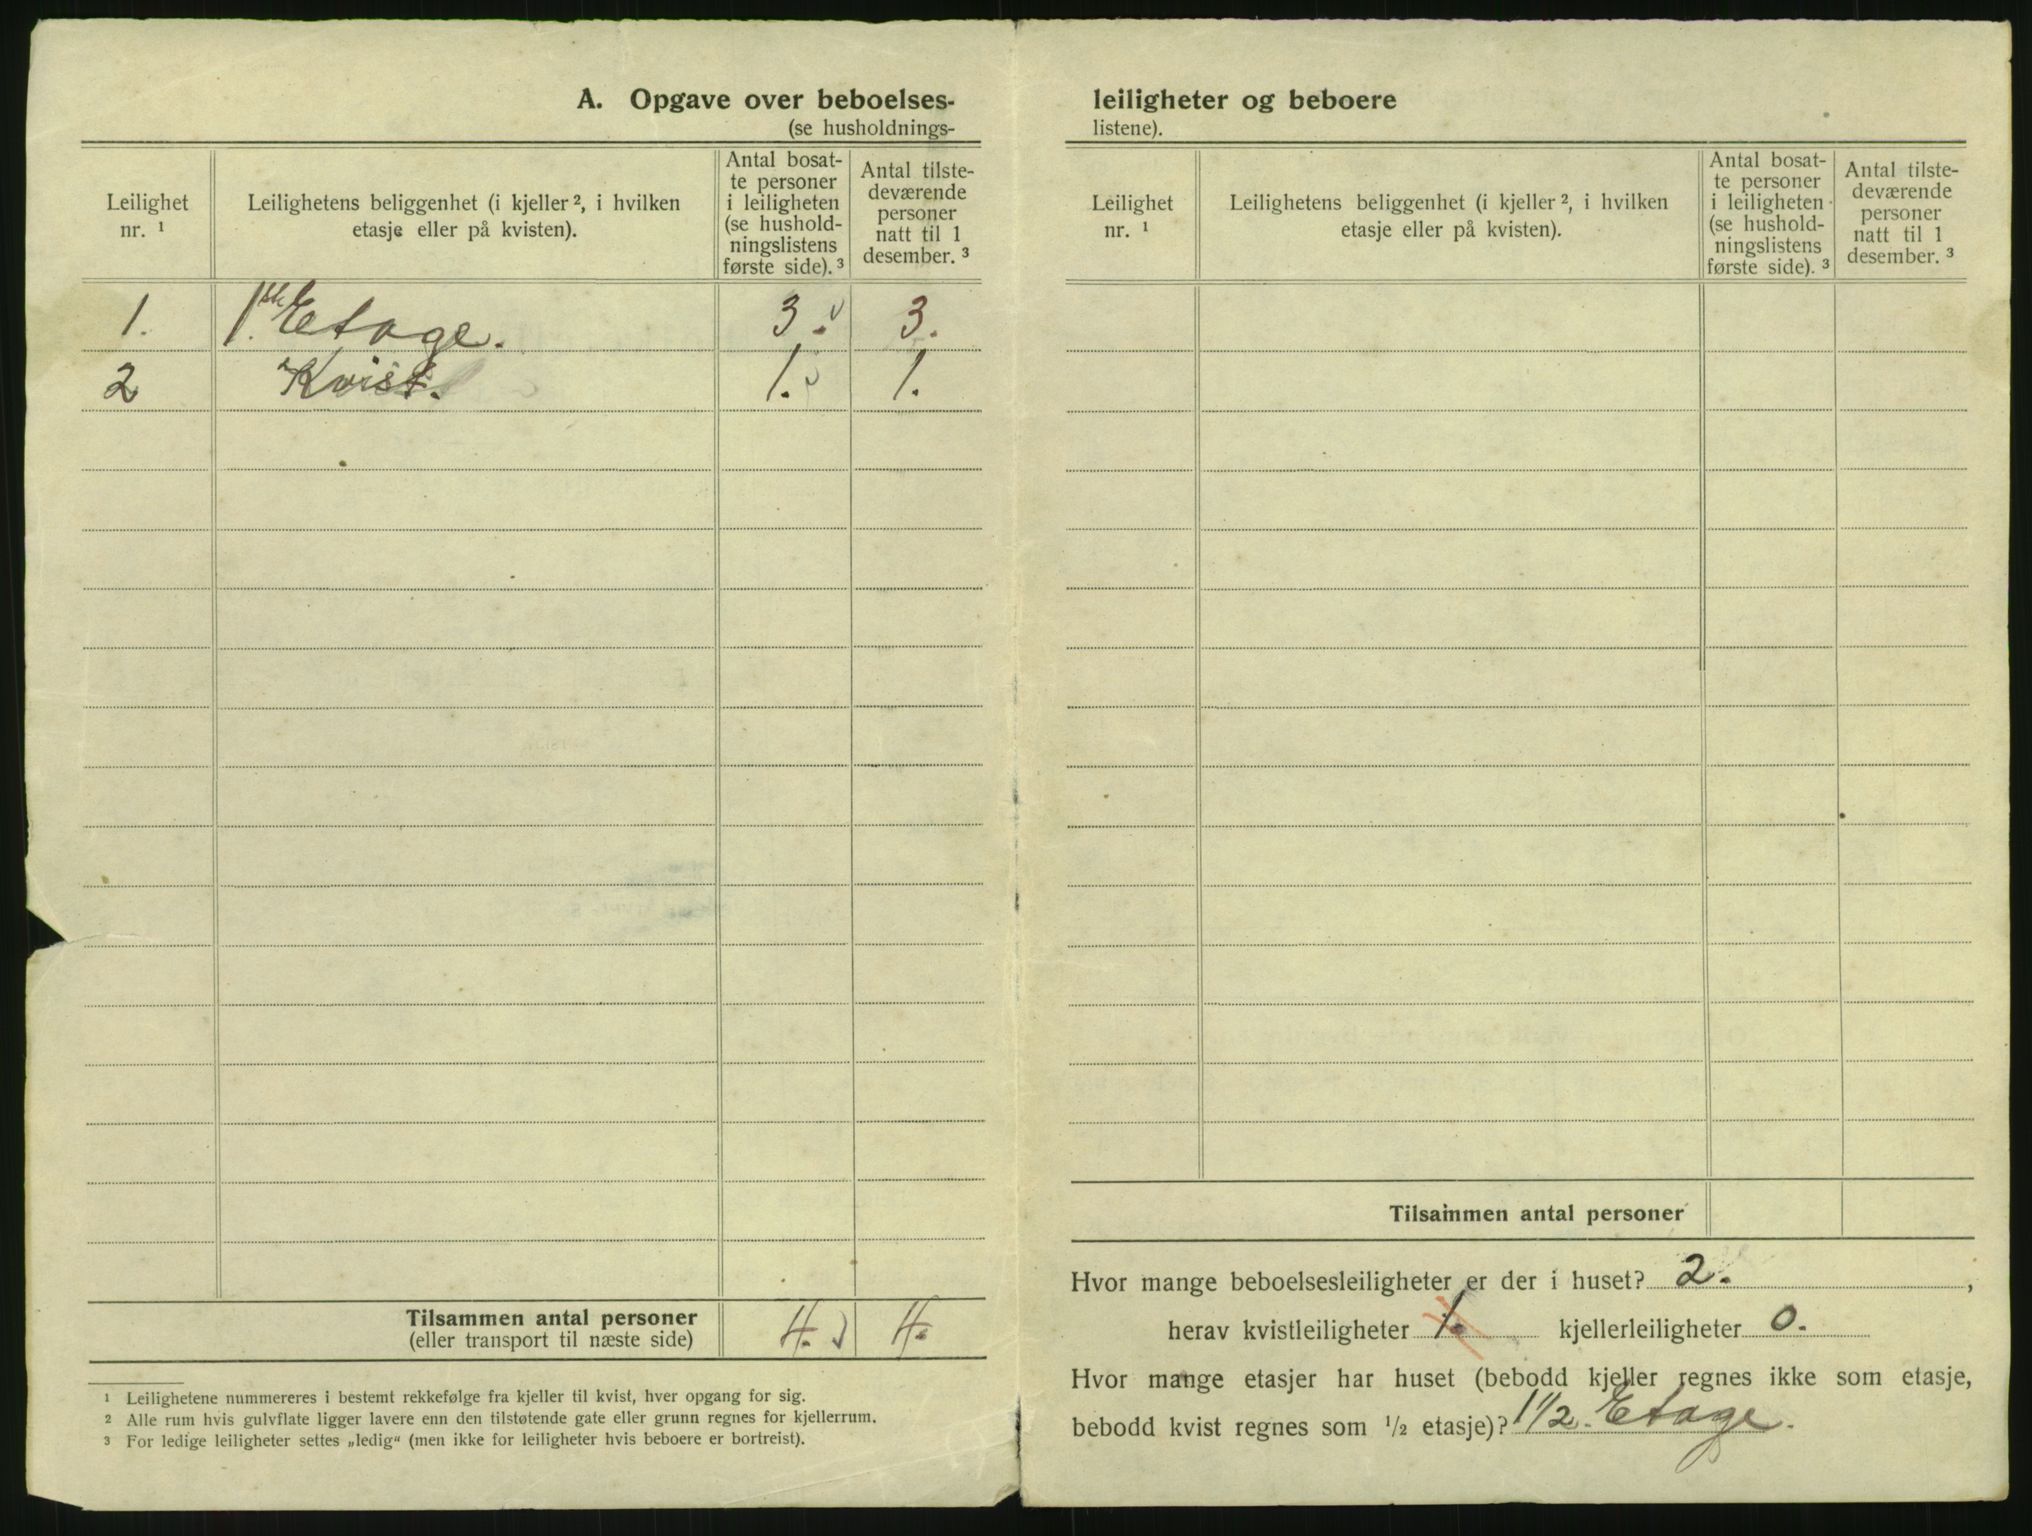 A. Opgave over beboelses-
(se husholdnings-
Leilighet
nr. ¹
Leilighetens beliggenhet (i kjeller ², i hvilken
etasje eller på kvisten).
Antal bosat-
te personer
i leiligheten
(se hushold-
ningslistens
første side). ³
Antal tilste-
deværende
personer
natt til 1
desember. ³
1. 1ste Etage. 3. 3.
2 Kvist. 1. 1.
Tilsammen antal personer 4. 4.
(eller transport til næste side)
¹ Leilighetene nummereres i bestemt rekkefølge fra kjeller til kvist, hver opgang for sig.
² Alle rum hvis gulvflate ligger lavere enn den tilstøtende gate eller grunn regnes for kjellerrum.
³ For ledige leiligheter settes „ledig“ (men ikke for leiligheter hvis beboere er bortreist).
leiligheter og beboere
listene).
Leilighet
nr. ¹
Leilighetens beliggenhet (i kjeller ², i hvilken
etasje eller på kvisten).
Antal bosat-
te personer
i leiligheten
(se hushold-
ningslistens
første side). ³
Antal tilste-
deværende
personer
natt til 1
desember. ³
Tilsammen antal personer
Hvor mange beboelsesleiligheter er der i huset? 2. ,
herav kvistleiligheter 1. kjellerleiligheter 0.
Hvor mange etasjer har huset (bebodd kjeller regnes ikke som etasje,
bebodd kvist regnes som ½ etasje)? 1 1/2. Etage.